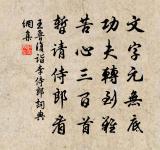 文字元無底
功夫轉到難
苦心三百首
暫請侍郎看
王魯復詣李侍郎詞典
網集